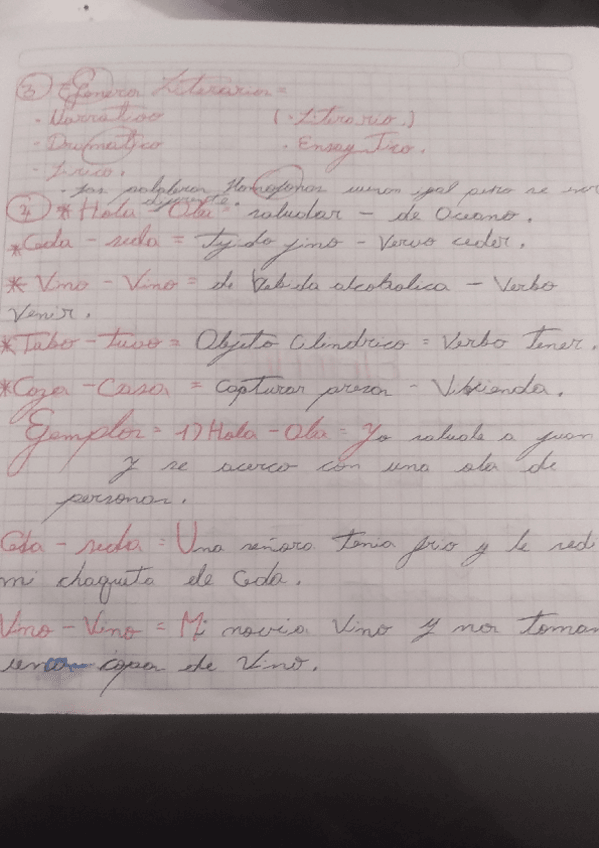 3 Generos Literarios =
· Narrativo (· Literario.)
· Dramatico · Ensaytico.
· Lirico.
· Las palabras Homofonas suenan igual pero se
diferente.
4 * Hola - Ola = saludar - de Oceano.
* Ceda - seda = Tejido fino - Vervo ceder.
* Vino - Vino = de Bebida alcoholica - Verbo
Venir.
* Tubo - tuvo = Objeto Cilindrico = Verbo Tener.
* Caza - Casa = Capturar presa - Vivienda.
Ejemplos = 1) Hola - Ola = Yo salude a juan
y se acerco con una ola de
personas.
Ceda - seda = Una señora tenia frio y le sedi
mi chaqueta de Ceda.
Vino - Vino = Mi novia Vino y nos toman
una copa de Vino.